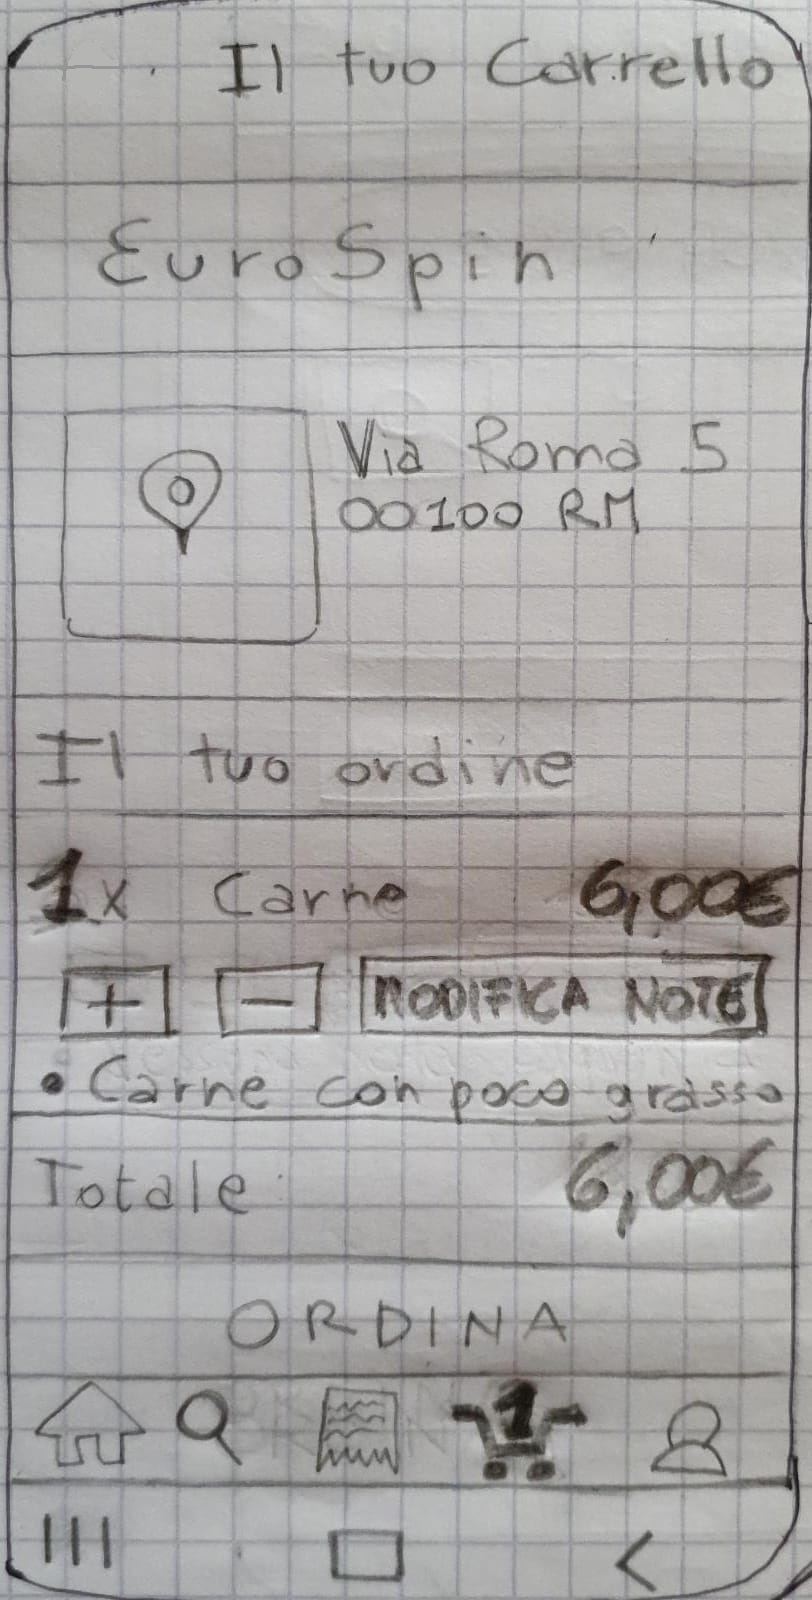 Il tuo Carrello
EuroSpin
Via Roma 5
00100 RM
Il tuo ordine
1x Carne 6,00€
+ - MODIFICA NOTE
• Carne con poco grasso
Totale: 6,00€
ORDINA
1